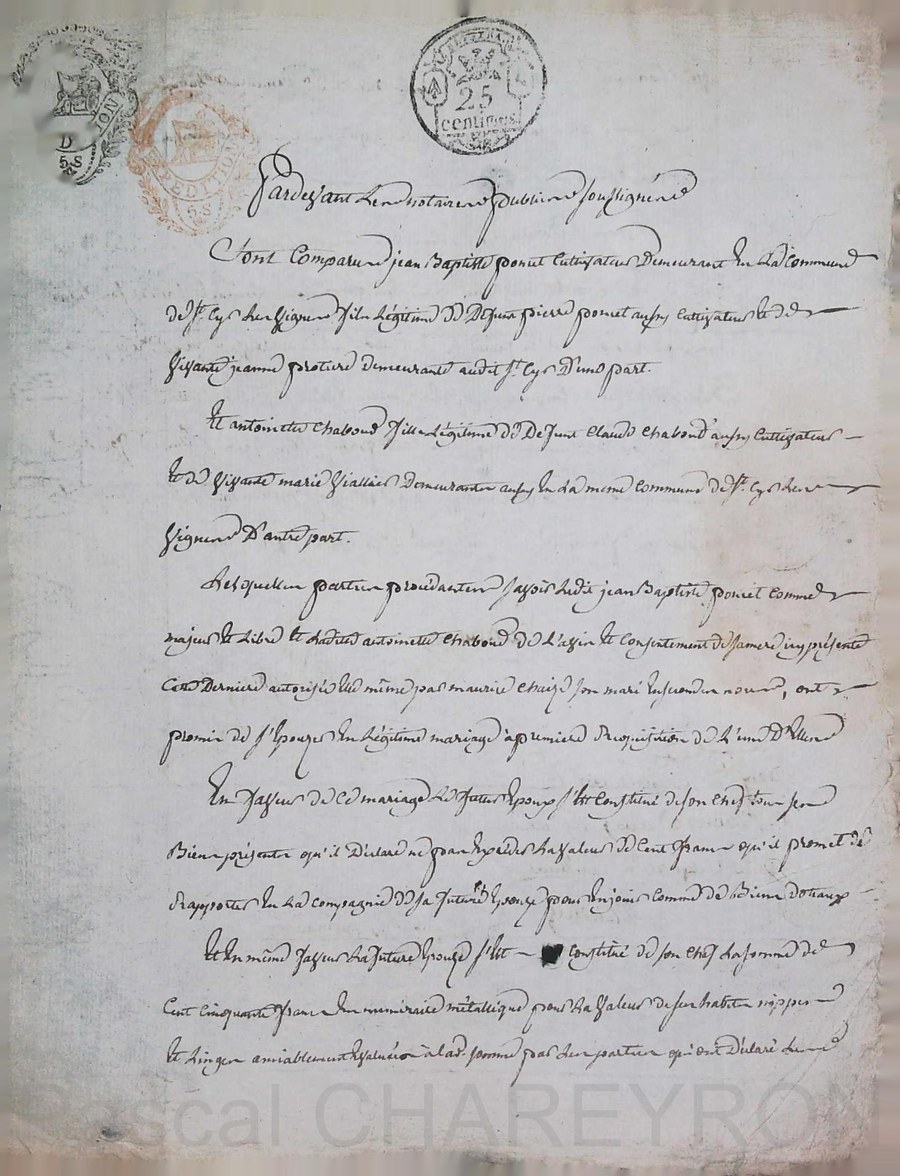 25
centimes
D
5S
EXPEDITION
5.S
Pardevant Les Notaires publics soussignés
Sont Comparus jean Baptiste poncet Cultivateur Demeurant En La Commune
de St. Cyr Les Vignes fils Légitime de Defunt pierre poncet aussy Cultivateur Et de
Vivante jeanne protiere demeurante audit St. Cyr D'une part.
Et antoinette Chaboud fille Légitime de Defunt Claude Chaboud aussy Cultivateur
Et de Vivante marie Viallier Demeurantes aussy En La meme Commune de St. Cyr Les
Vignes D'autre part.
Lesquelles parties procédantes savoir Ledit jean Baptiste poncet Comme
majeur Et Libre Et Ladite antoinette Chaboud de L'avis Et Consentement de sa mere icy présente
Cette Derniere autorisée Elle même par maurice Chaize son mari En secondes noces, ont
promis de s'Epouser En Légitime mariage à premiere Requisition de L'une D'Elles
En faveur de Ce mariage Le futur Epoux s'Est Constitué de son Chef tous ses
Biens présents qu'il Déclare ne pas Excéder La valeur de Cent francs qu'il promet de
Rapporter En La Compagnie de sa future Epouse pour En jouir Comme de Biens dotaux
Et En même faveur La future Epouse s'Est Constitué de son Chef La somme de
Cent Cinquante francs En numéraire métallique pour La valeur de ses habits nippes
Et Linges amiablement Evalués à Lad. somme par Les parties qui ont Déclaré Les
Pascal CHAREYRON